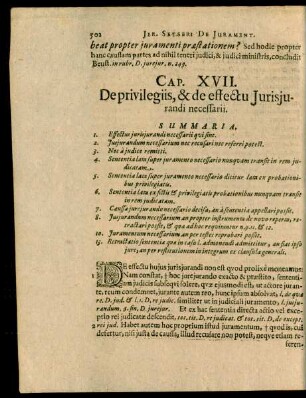 502 JER. SETSERI DE JURAMENT.
beat propter juramenti præstationem? Sed hodie propter
hanc causam partes ad nihil teneri judici, & judicii ministris, concludit
Beust. in rubr. D. jurejur. n. 249.
CAP. XVII.
De privilegiis, & de effectu Jurisju-
randi necessarii.
SUMMARIA.
1. Effectus jurisjurandi necessarii qui sint.
2. Jusjurandum necessarium nec recusari nec referri potest.
3. Nec à judice remitti.
4. Sententia lata super juramento necessario nunquam transit in rem ju-
dicatam.
5. Sententia lata super juramento necessario dicitur lata ex probationi-
bus privilegiatis.
6. Sententia lata ex actis & privilegiatis probationibus nunquam transit
in rem judicatam.
7. Causa jurejurando necessario decisa, an à sententia appellari possit.
8. Jusjurandum necessarium an propter instrumenta de novo reperta, re-
tractari possit, & qua adhoc requirantur n. 9. 11. & 12.
10. Juramentum necessarium an per testes reprobari possit.
13. Retractatio sententia qua in casu l. admonendi admittitur, an fiat ipso
jure, an per restitutionem in integrum ex clausula generali.
DE effectu hujus jurisjurandi non est quod prolixè moneamus:
Nam constat, hoc jurejurando exacto & præstito, sententi-
am judicis subsequi solere, quæ ejusmodi est, ut actorem juran-
tem reum condemnet, jurante autem reo, hunc ipsum absolvat,
rei jud. Habet autem hoc proprium istud juramentum, quod is, cui
defertur, nisi justa de causa, illud recusare non potest, neque etiam re
feren-